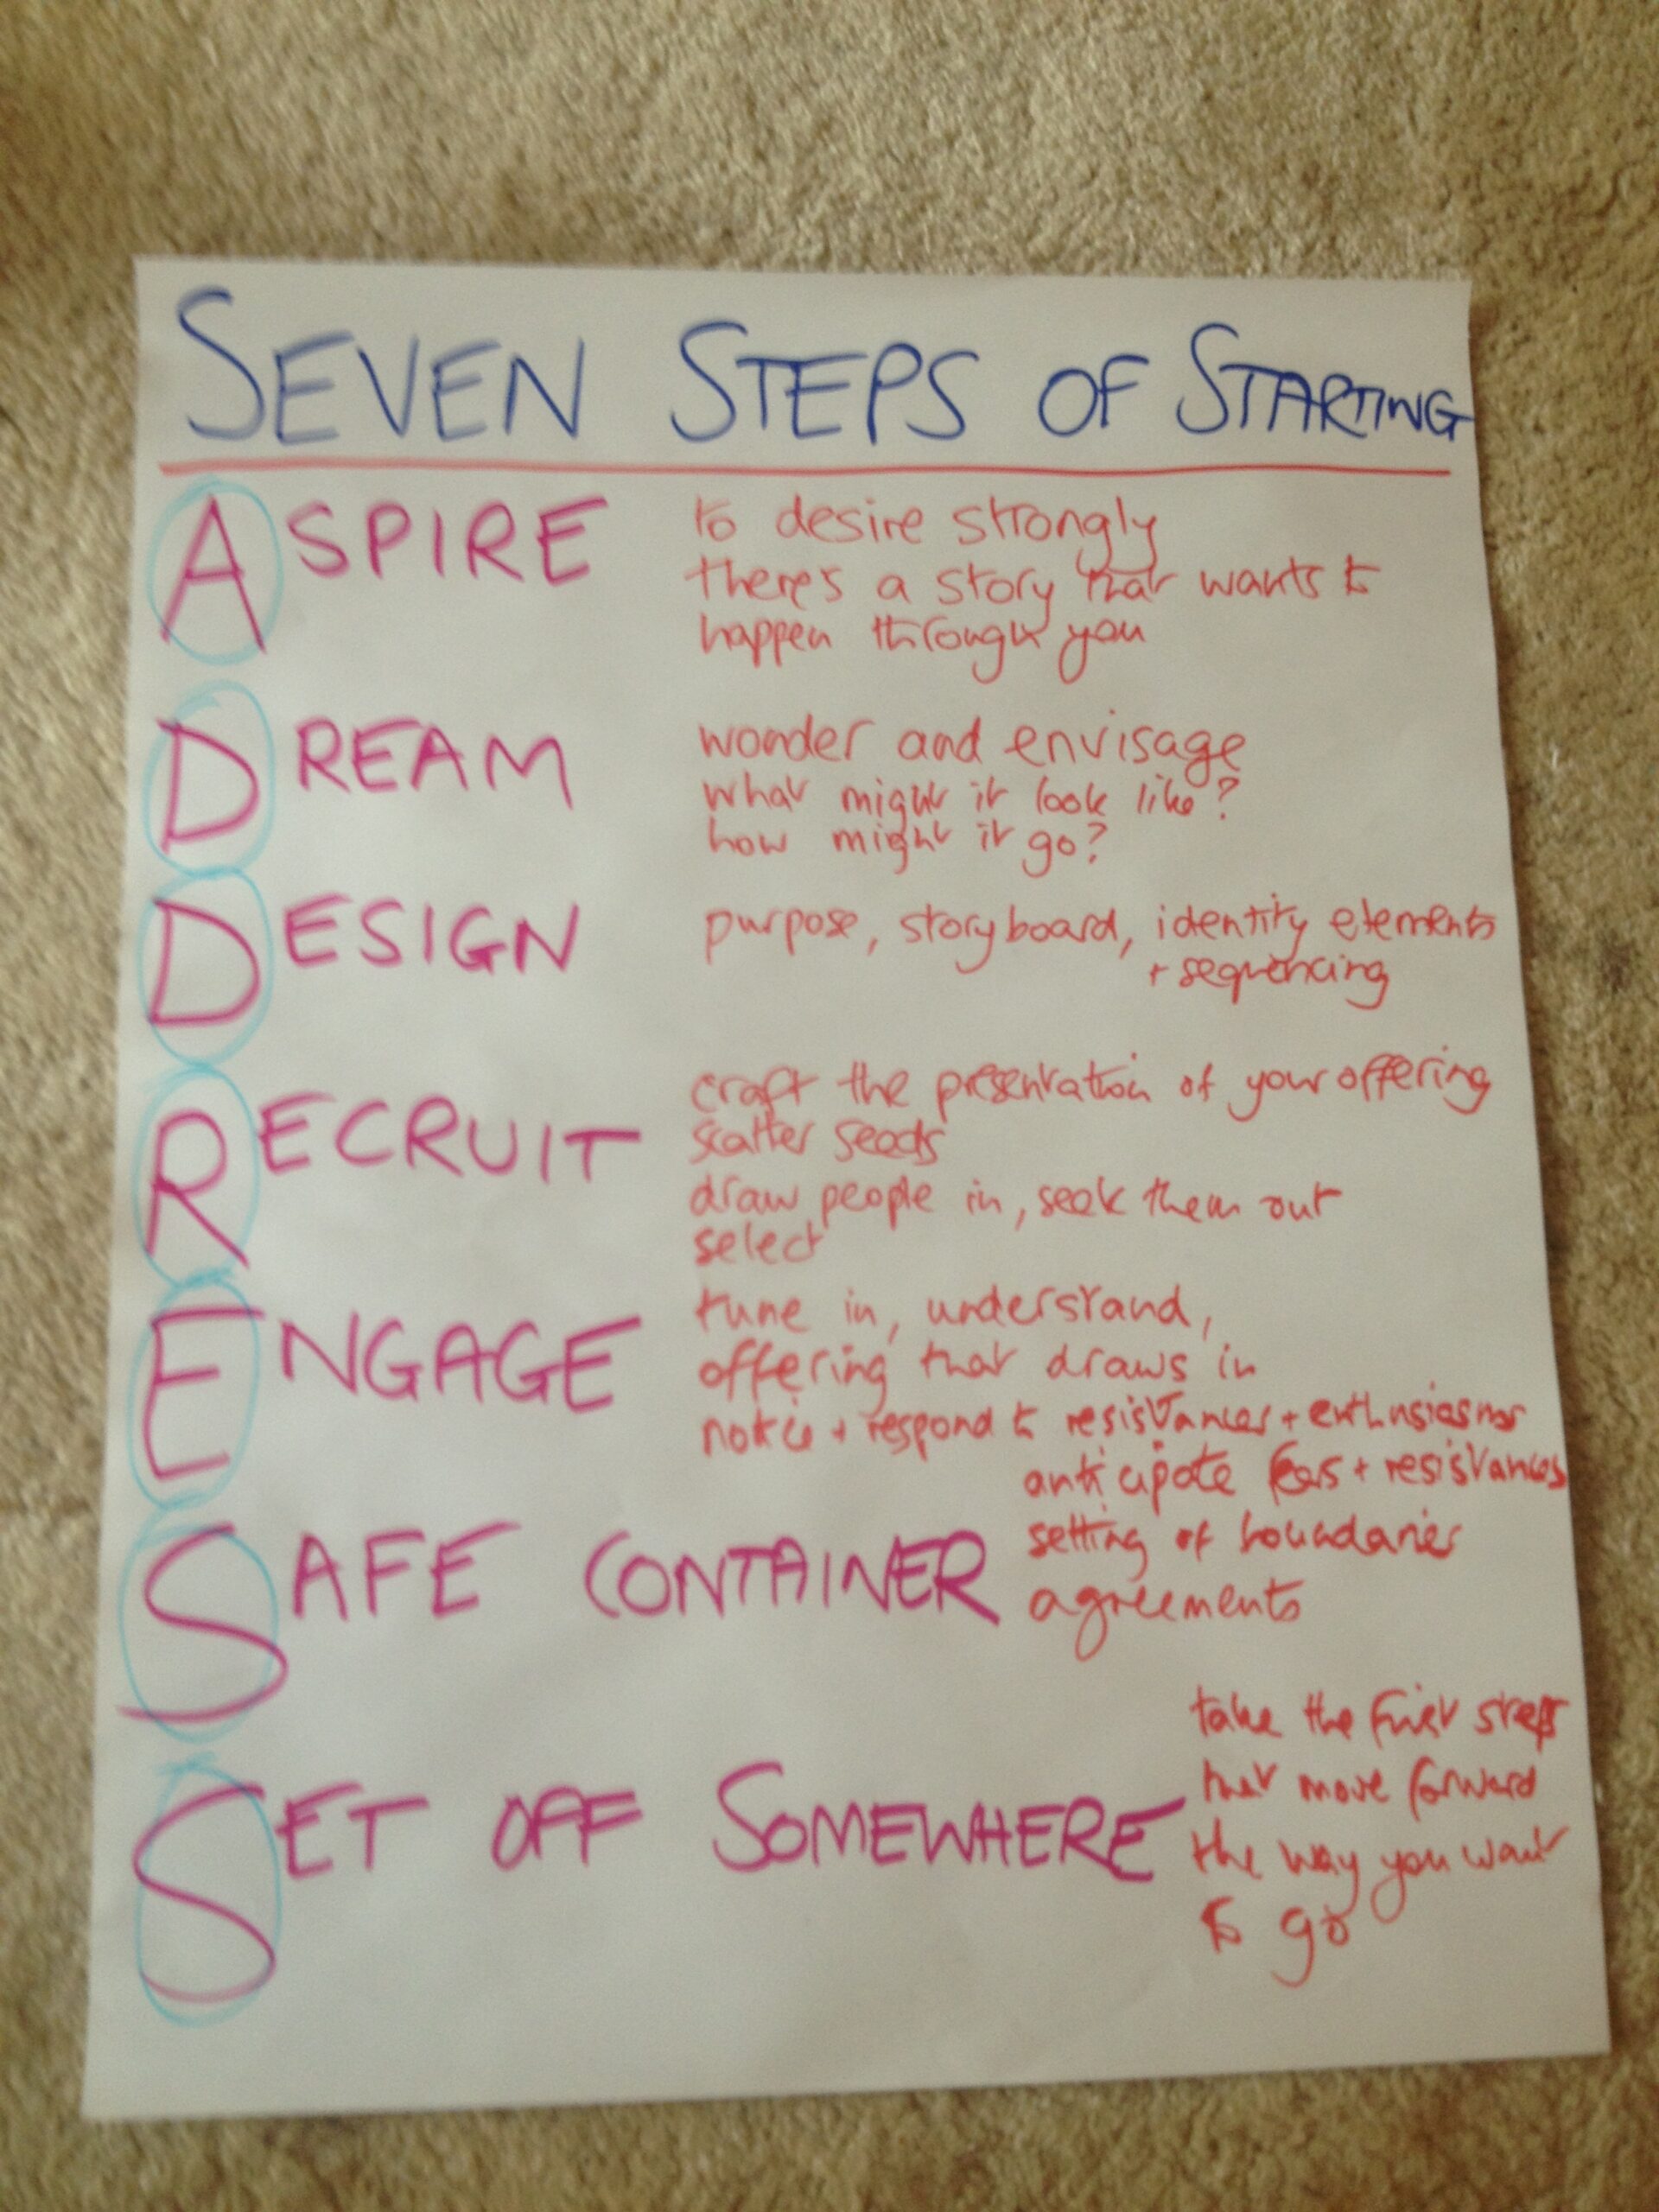 SEVEN STEPS OF STARTING
ASPIRE to desire strongly
there's a story that wants to
happen through you
DREAM wonder and envisage
what might it look like?
how might it go?
DESIGN purpose, storyboard, identity elements
+ sequencing
RECRUIT craft the presentation of your offering
scatter seeds
draw people in, seek them out
select
ENGAGE tune in, understand,
offering that draws in
notice + respond to resistances + enthusiasms
anticipate fears + resistances
SAFE CONTAINER setting of boundaries
agreements
take the first steps
that move forward
SET OFF SOMEWHERE the way you want
to go